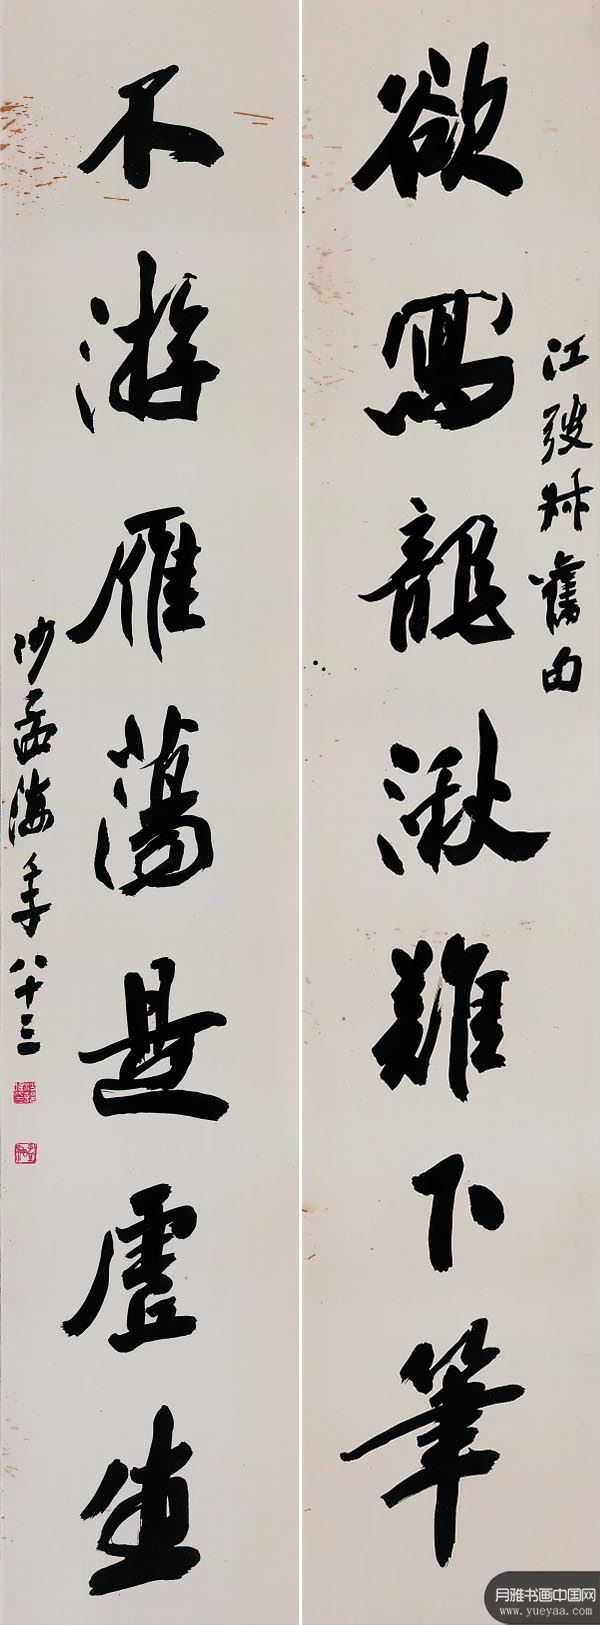 江弢叔舊句
欲寫龍湫難下筆
不游雁蕩是虛生
沙孟海年八十三
月雅书画中国网
www.yueyaa.com